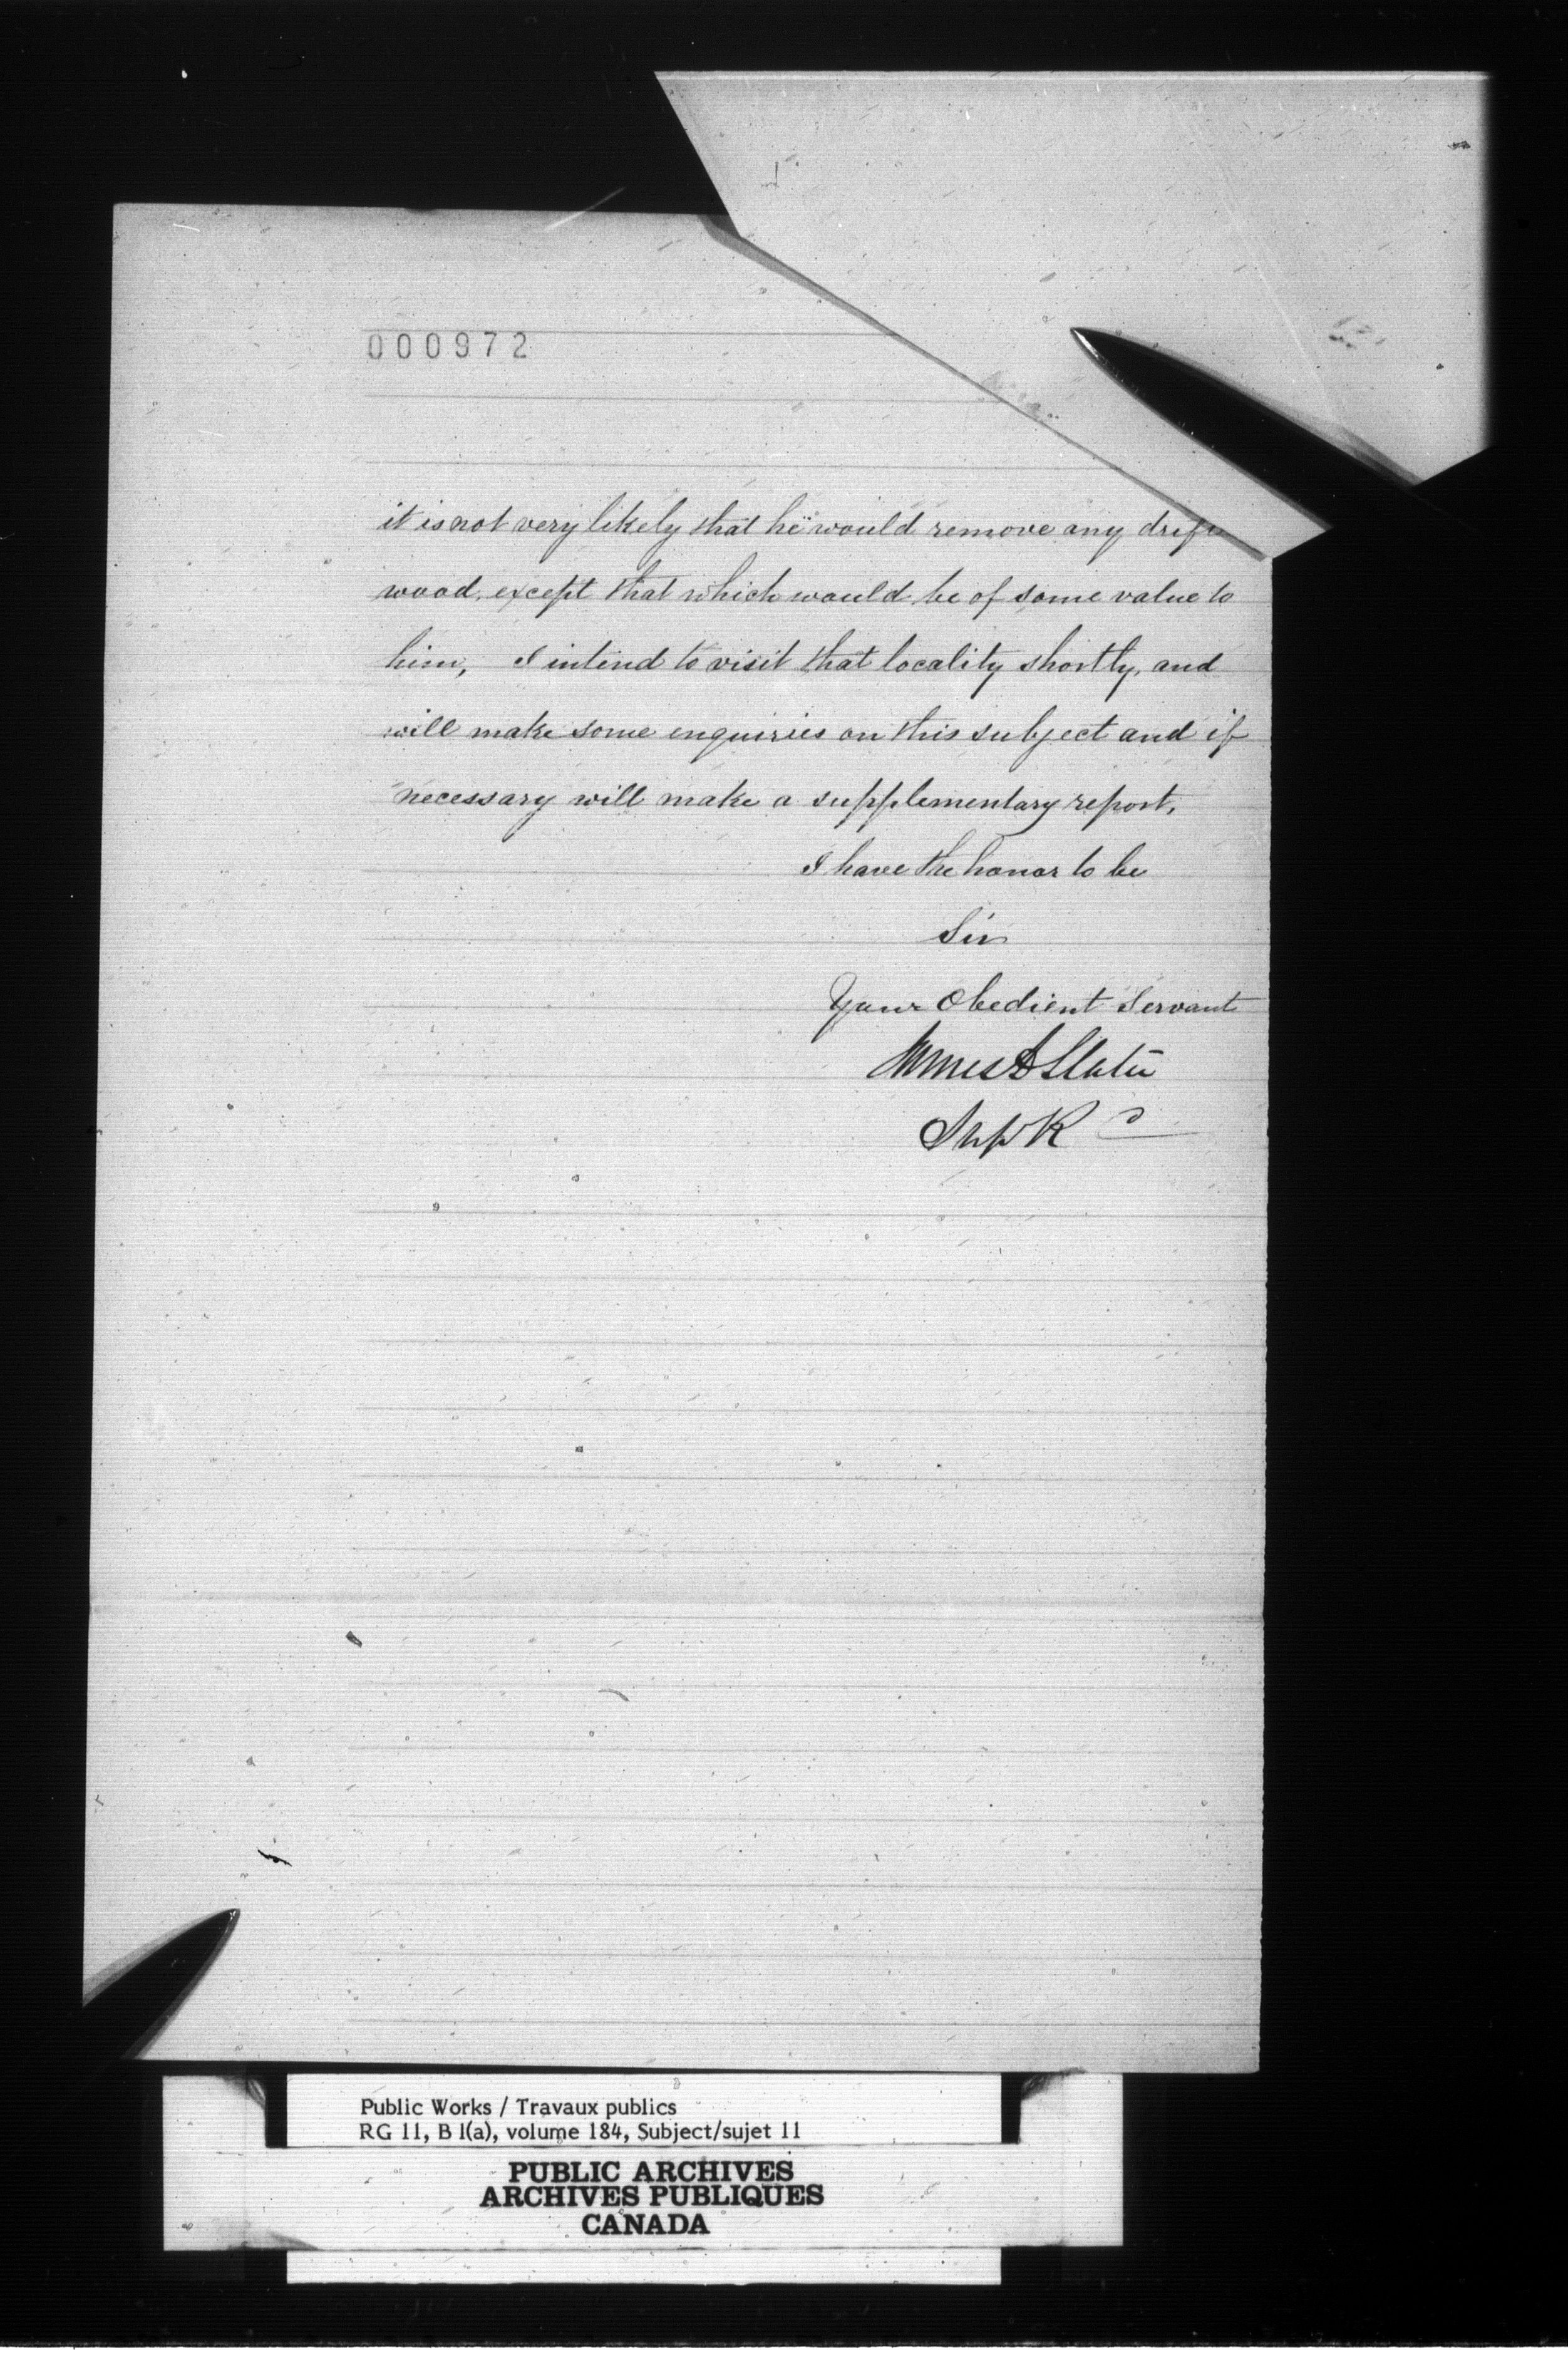 000972
it is not very likely that he would remove any drift
wood, except that which would be of some value to
him, I intend to visit that locality shortly, and
will make some enquiries on this subject and if
necessary will make a supplementary report,
I have the honor to be
Sir
Your Obedient Servant
James A Slater
Public Works / Travaux publics
RG 11, B 1(a), volume 184, Subject/sujet 11
PUBLIC ARCHIVES
ARCHIVES PUBLIQUES
CANADA